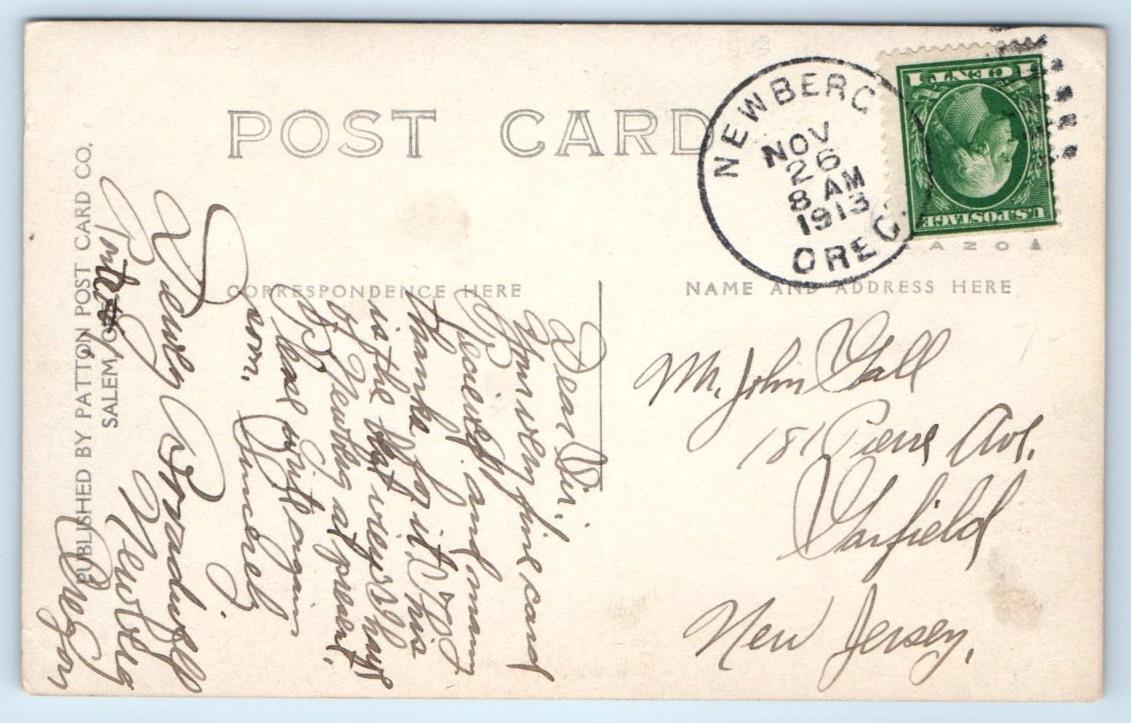 POST CARD
NEWBERG
NOV
26
8 AM
1913
OREG.
1 CENT 1
U.S. POSTAGE
AZO
CORRESPONDENCE HERE
NAME AND ADDRESS HERE
PUBLISHED BY PATTON POST CARD CO.
SALEM, O
Mr. John Gall
181 Ave.
Garfield
New Jersey.
Dear Sir!
Your very fine card
Received and many
thanks for it. This
is the last view I have
of Newberg at present.
Please write again
soon.
Sincerely
Newberg
Oregon